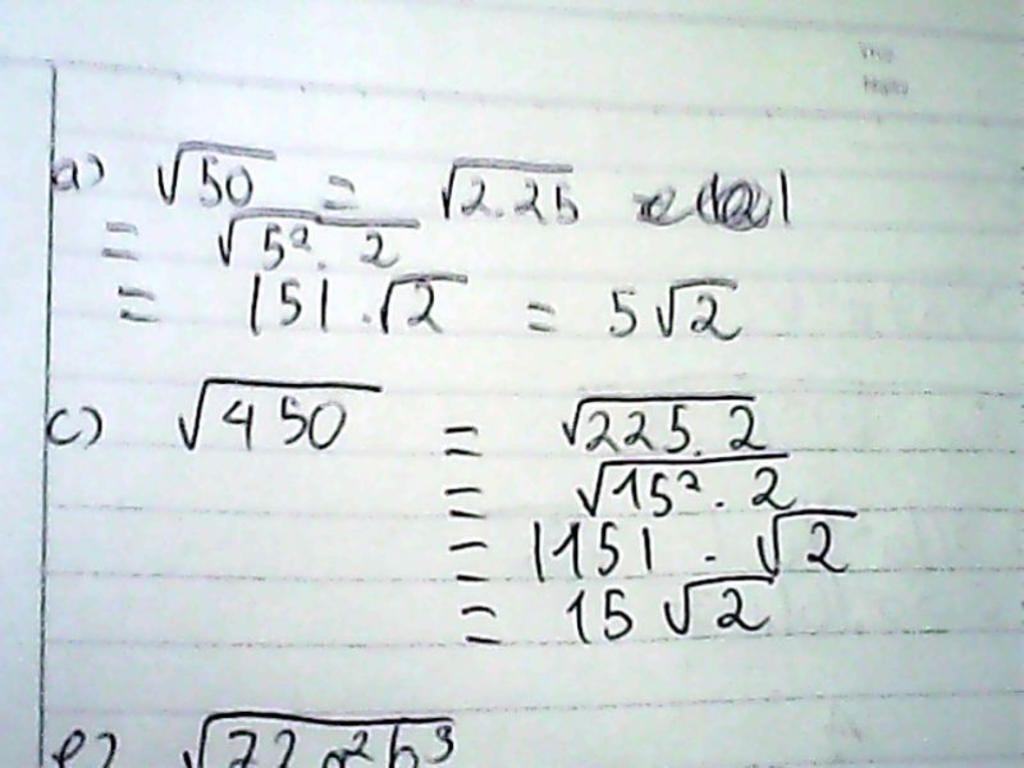 a) √50 = √2.25
= √5². 2
= |5| .√2 = 5√2
c) √450 = √225. 2
= √15² . 2
= |15| . √2
= 15 √2
e) √72 a²b³